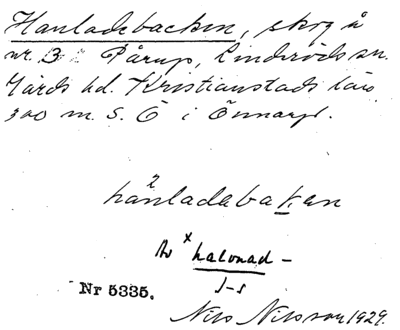 Hanladebacken, skog å
nr. 3 Pårup, Linderöds sn.
Gärds hd. Kristianstads län
300 m. S. Ö i Önnarp.
hanladebaken
Av × halvnad –
J-s
Nr 5335.
Nils Nilsson 1929.